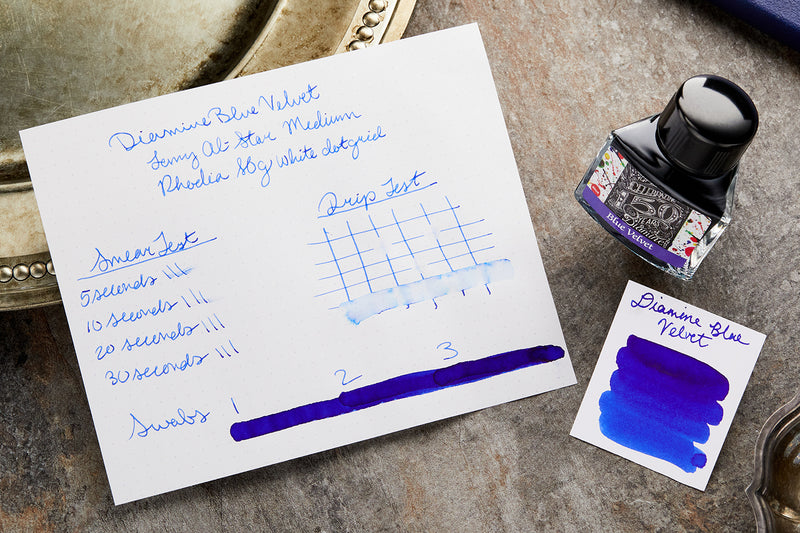 Diamine Blue Velvet
Lamy Al-Star Medium
Rhodia 80g white dotgrid
Drip Test
Smear Test
5 seconds
10 seconds
20 seconds
30 seconds
Swabs 1 2 3
150
YEARS
Diamine
Blue Velvet
Diamine Blue
Velvet